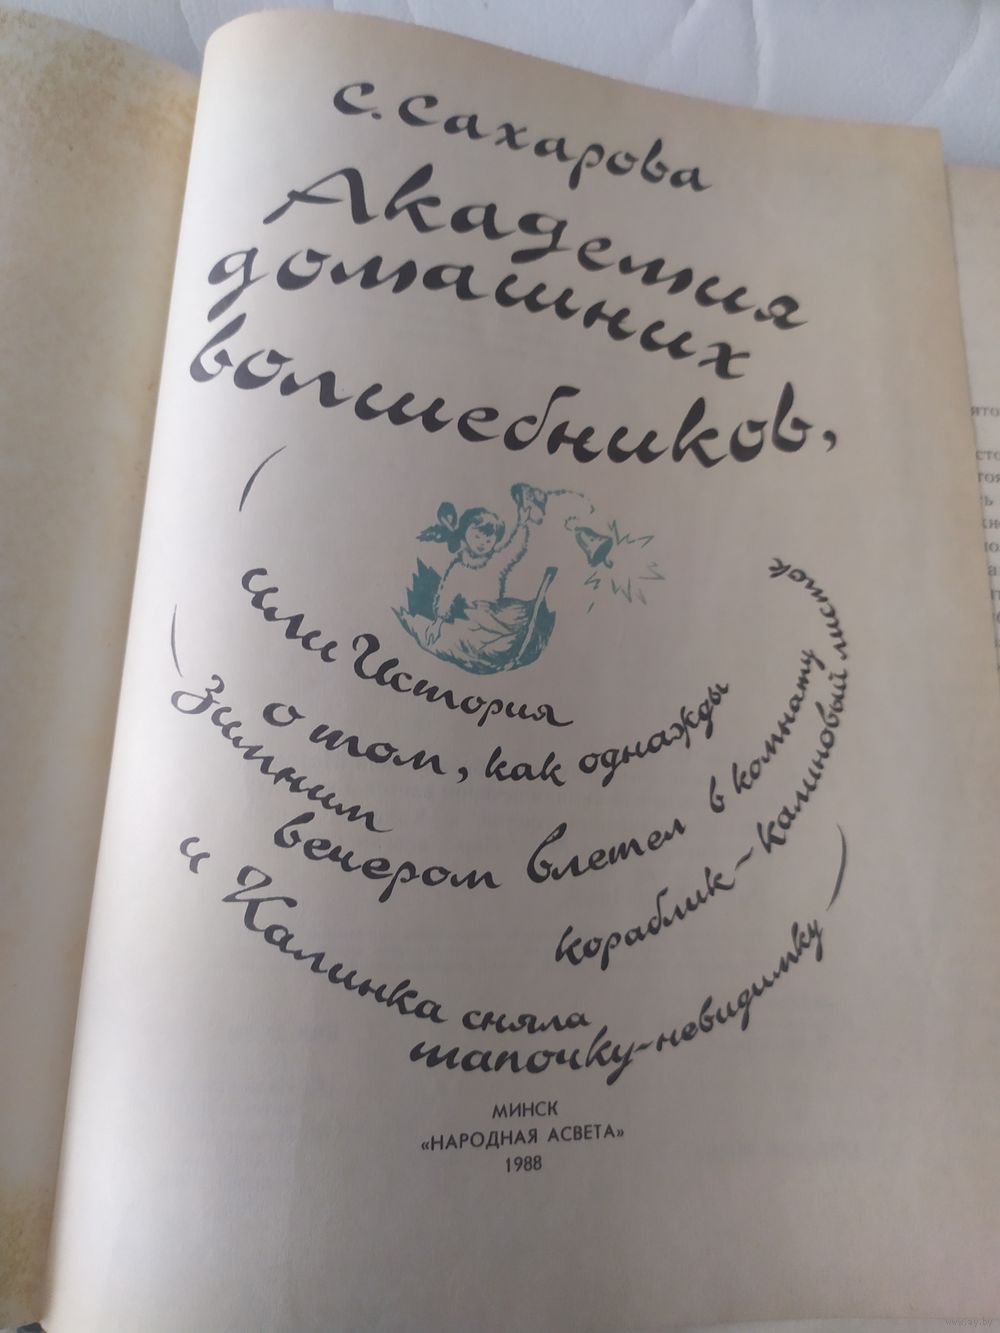 С. Сахарова
Академия
домашних
волшебников,
(
или История
о том, как однажды
Зимним
вечером влетел в комнату
кораблик-калиновый листок
и Калинка сняла
шапочку-невидимку
)
МИНСК
«НАРОДНАЯ АСВЕТА»
1988